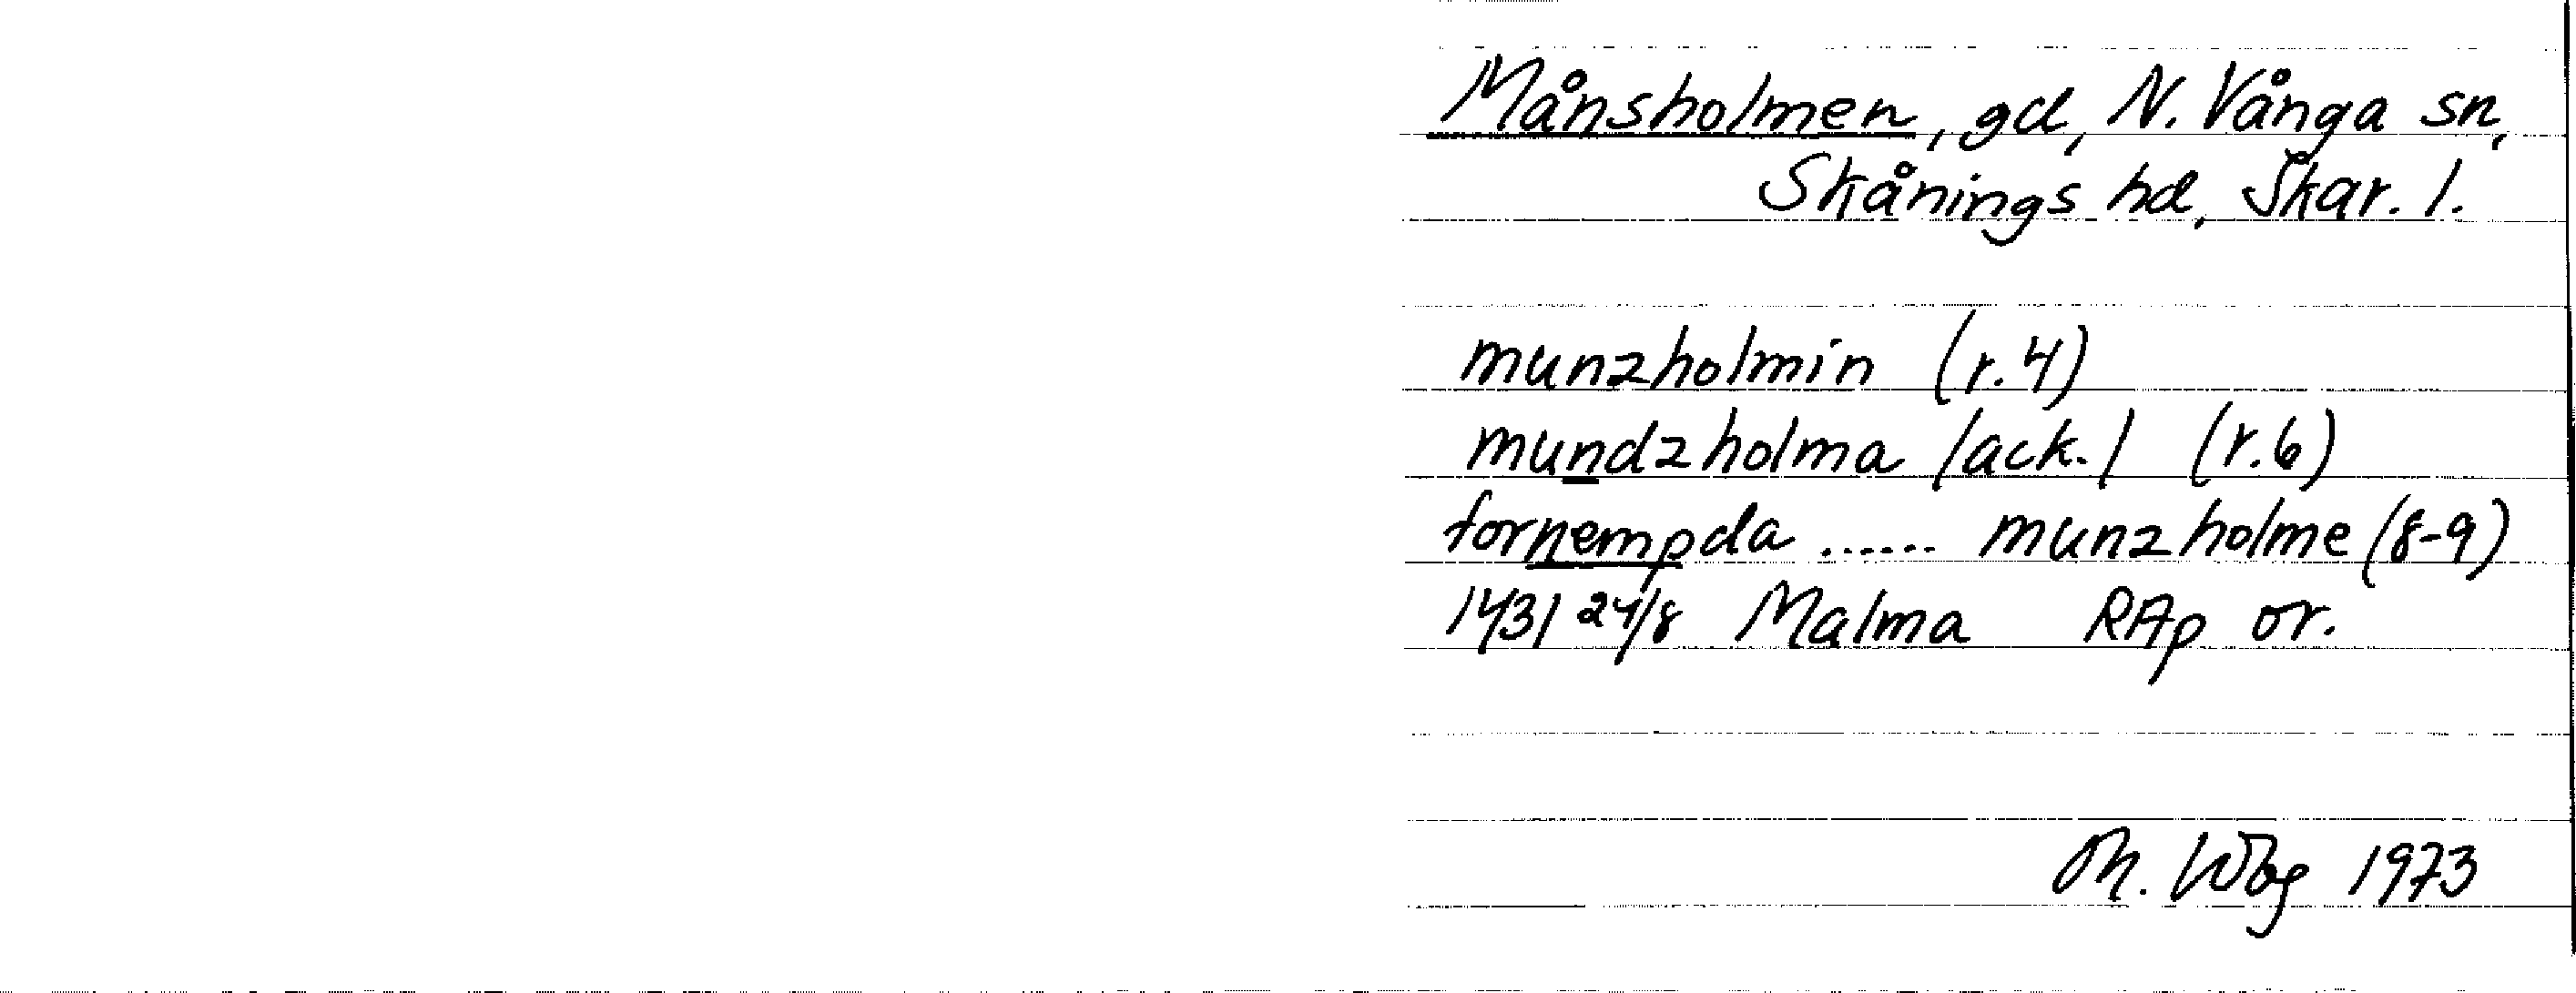 Månsholmen, gd, N. Vånga sn,
Skånings hd, Skar. l.
munzholmin (r.4)
mundzholma /ack./ (r.6)
fornempda ...... munzholme (8-9)
1431 24/8 Malma RAp or.
M. Wbg 1973